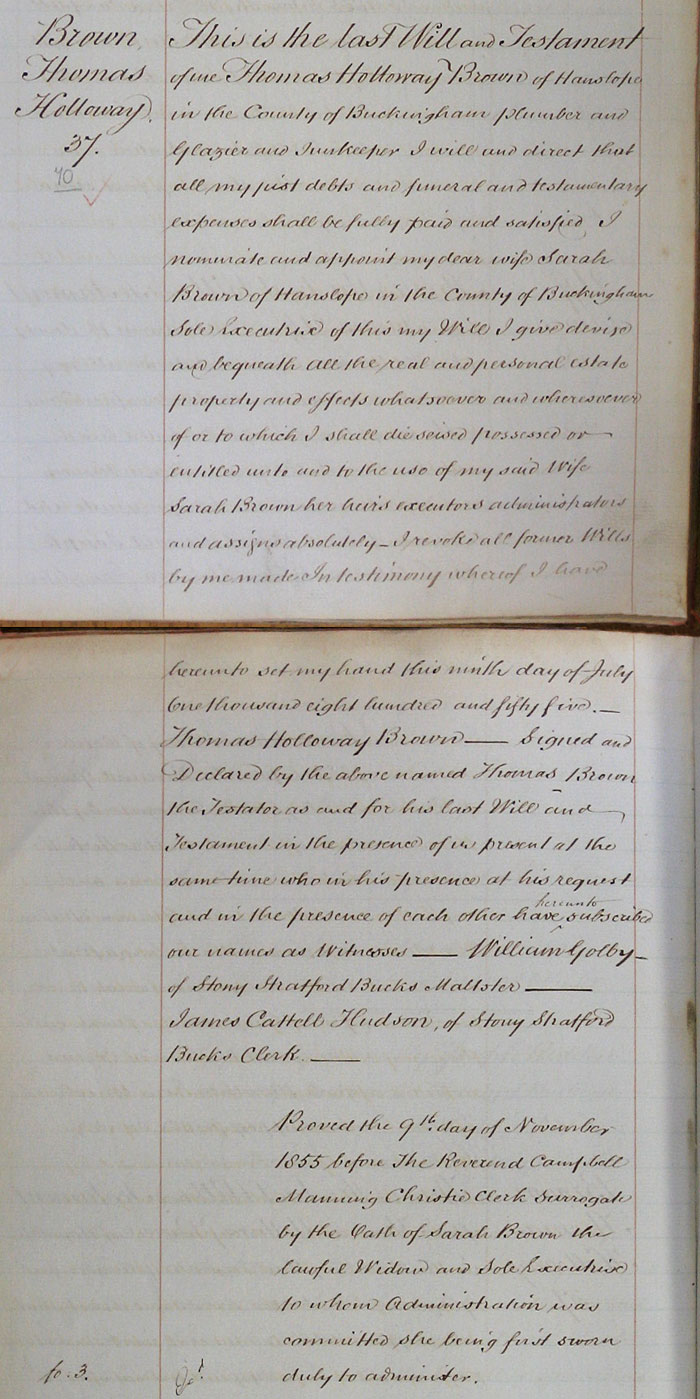 Brown,
Thomas
Holloway.
37.
70
This is the last Will and Testament
of me Thomas Holloway Brown of Hanslope
in the County of Buckingham plumber and
Glazier and Innkeeper I will and direct that
all my just debts and funeral and testamentary
expenses shall be fully paid and satisfied, I
nominate and appoint my dear wife Sarah
Brown of Hanslope in the County of Buckingham
Sole Executrix of this my Will I give devise
and bequeath all the real and personal estate
property and effects whatsoever and wheresoever
of or to which I shall die seised possessed or
entitled unto and to the use of my said Wife
Sarah Brown her heirs executors administrators
and assigns absolutely – I revoke all former Wills
by me made In testimony whereof I have
hereunto set my hand this ninth day of July
One thousand eight hundred and fifty five. —
Thomas Holloway Brown — Signed and
Declared by the above named Thomas Brown
the Testator as and for his last Will and
Testament in the presence of us present at the
same time who in his presence at his request
and in the presence of each other have hereunto subscribed
our names as Witnesses — William Golby —
of Stony Stratford Bucks Maltster —
James Cattell Hudson, of Stony Stratford
Bucks Clerk. —
Proved the 9th. day of November
1855 before The Reverend Campbell
Manning Christie Clerk Surrogate
by the Oath of Sarah Brown the
lawful Widow and Sole Executrix
to whom Administration was
committed she being first sworn
duly to administer.
fo. 3.